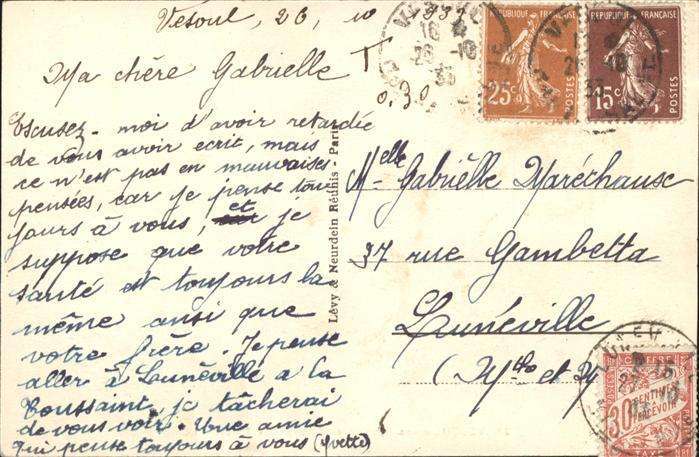 Vesoul, 26, 10 33
Ma chère Gabrielle
Escusez-moi d'avoir retardée
de vous avoir ecrit, mais
ce n'est pas en mauvaises
pensées, car je pense tou
jours à vous, et je
suppose que votre
santé est toujours la
même ansi que
votre frère. Je pense
aller à Lunéville a la
Toussaint, je tâcherai
de vous voir. Une amie
qui pense toujours à vous (Yvette)
Lévy & Neurdein Réunis - Paris
T
0.30
REPUBLIQUE FRANÇAISE
25c
POSTES
REPUBLIQUE FRANÇAISE
15c
POSTES
Melle Gabriëlle Maréchause
37 rue Gambetta
Lunéville
(Mthe et M
CHIFFRE
30
CENTIMES
A RECEVOIR
TAXE